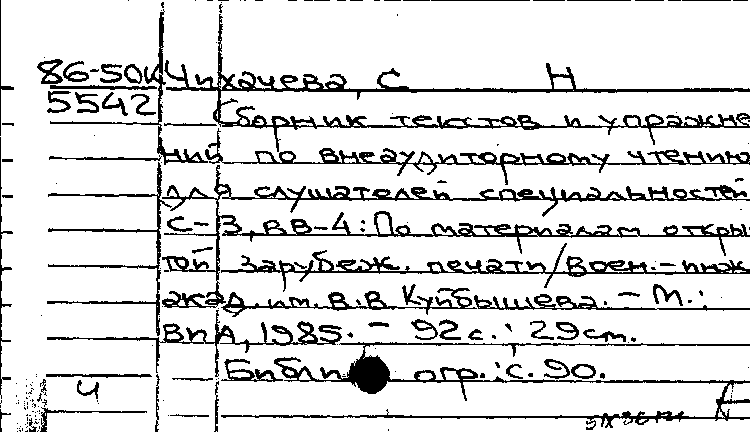 86-50к Чихачева, С Н
5542 Сборник текстов и упражне
ний по внеаудиторному чтению
для слушателей специальностей
С-3, ВВ-4: По материалам откры
той зарубеж. печати/Воен.-инж
акад. им. В.В Куйбышева. - М.:
ВИА, 1985. - 92 с.; 29 см.
Библиогр.: с. 90.
Ч